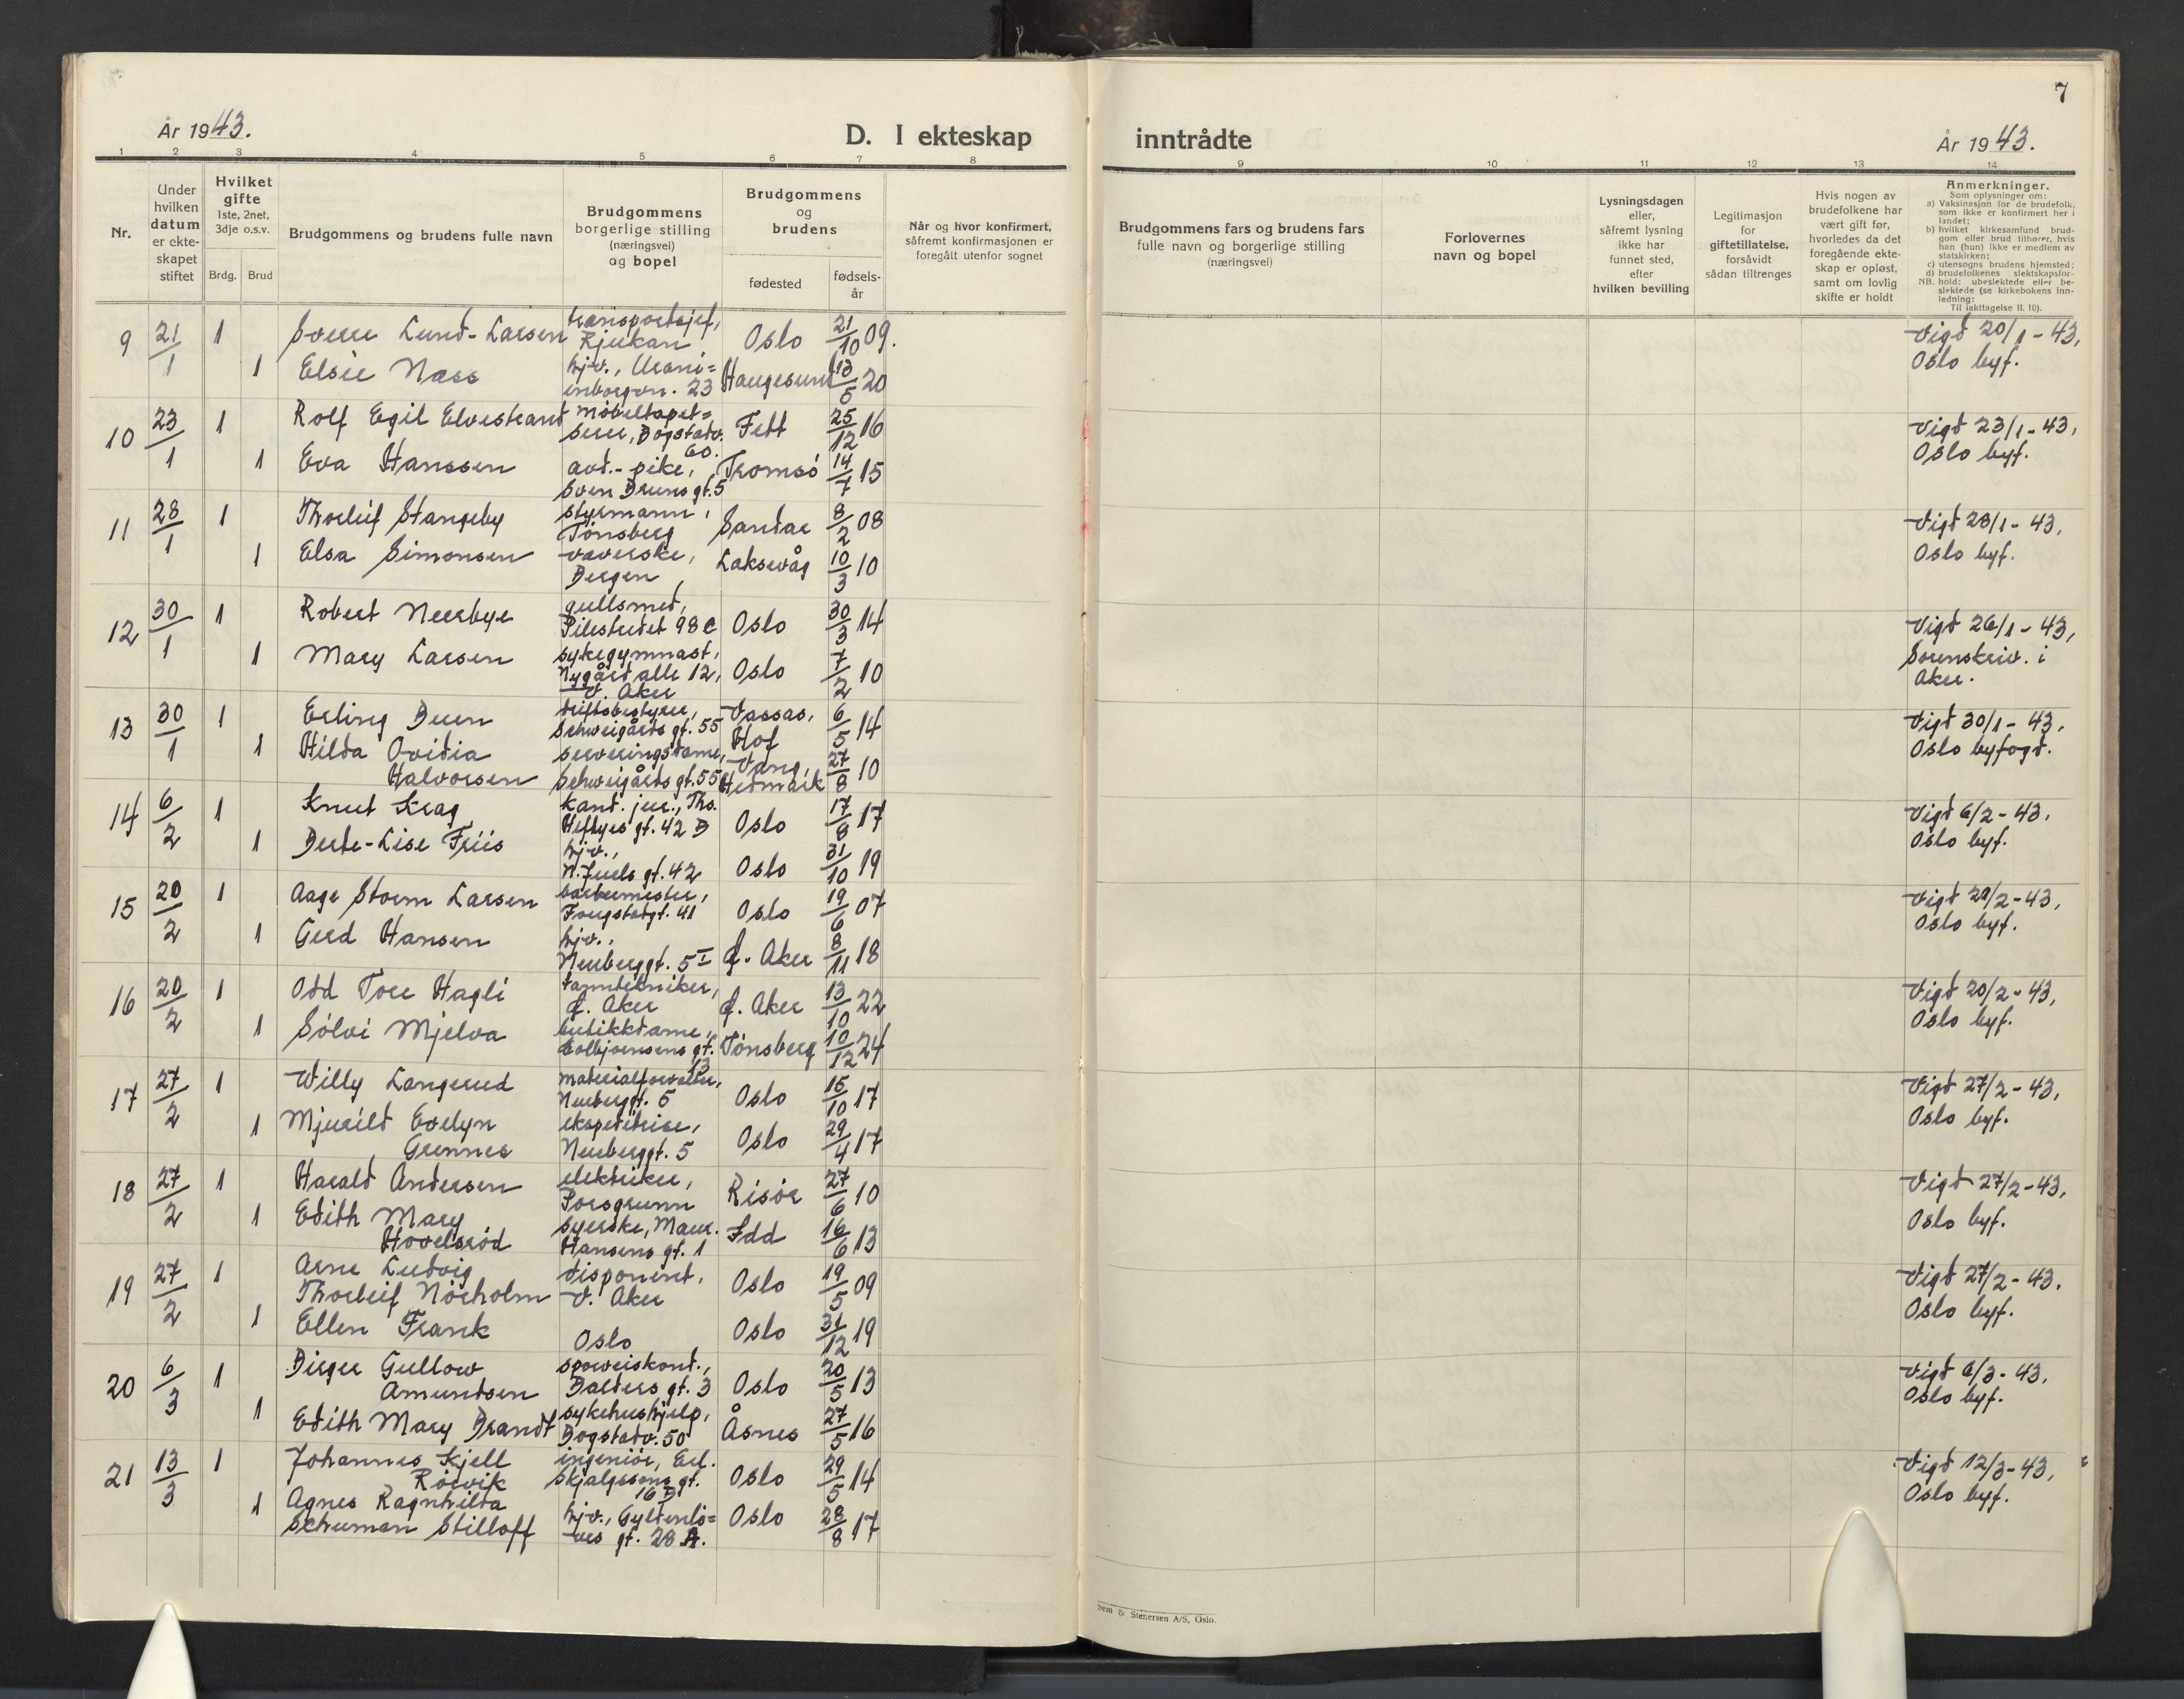 7
År 1943.
D. I ekteskap inntrådte
År 1943.
1 2 3 4 5 6 7 8 9 10 11 12 13 14
Nr.
Under
hvilken
datum
er ekte-
skapet
stiftet
Hvilket
gifte
1ste, 2net,
3dje o.s.v.
Brdg. Brud
Brudgommens og brudens fulle navn
Brudgommens
borgerlige stilling
(næringsvei)
og bopel
Brudgommens
og
brudens
fødested
fødsels-
år
Når og hvor konfirmert,
såfremt konfirmasjonen er
foregått utenfor sognet
Brudgommens fars og brudens fars
fulle navn og borgerlige stilling
(næringsvei)
Forlovernes
navn og bopel
Lysningsdagen
eller,
såfremt lysning
ikke har
funnet sted,
efter
hvilken bevilling
Legitimasjon
for
giftetillatelse,
forsåvidt
sådan tiltrenges
Hvis nogen av
brudefolkene har
vært gift før,
hvorledes da det
foregående ekte-
skap er opløst,
samt om lovlig
skifte er holdt
Anmerkninger.
Som oplysninger om:
a) Vaksinasjon for de brudefolk,
som ikke er konfirmert her i
landet;
b) hvilket kirkesamfund brud-
gom eller brud tilhører, hvis
han (hun) ikke er medlem av
statskirken;
c) utensogns brudens hjemsted;
d) brudefolkenes slektskapsfor-
NB. hold: ubeslektede eller be-
slektede (se kirkebokens inn-
ledning:
Til iakttagelse II. 10).
9 21/1 1 Sverre Lund-Larsen transportsjef, Rjukan Oslo 21/10 09. Vigd 20/1-43, Oslo byf.
1 Elsie Næss hjv., Urani=enborgvn. 23 Haugesund 13/5 20
10 23/1 1 Rolf Egil Elvestrand møbeltapet=serer, Bogstadv. 60. Fett 25/12 16 Vigd 23/1-43, Oslo byf.
1 Eva Hanssen avd.-pike, Sven Bruns gt. 5 Tromsø 14/7 15
11 28/1 1 Thorleif Stangeby styrmann, Tønsberg Sandar 8/2 08 Vigd 28/1-43, Oslo byf.
1 Elsa Simonsen væverske, Bergen Laksevåg 10/3 10
12 30/1 1 Robert Neerbye gullsmed, Pilestredet 98 c Oslo 30/3 14 Vigd 26/1-43, Sorenskriv. i Aker.
1 Mary Larsen sykegymnast, Nygård alle 12, V. Aker Oslo 7/2 10
13 30/1 1 Erling Bruun driftsbestyrer, Schweigårds gt. 55 Vassås, Hof 6/5 14 Vigd 30/1-43, Oslo byfogd.
1 Hilda Ovidia Halvorsen serveringsdame, Schweigårds gt. 55 Vang, Hedmark 27/8 10
14 6/2 1 Knut Krag kand. jur., Ths. Heftyes gt. 42 B Oslo 17/8 17 Vigd 6/2-43, Oslo byf.
1 Berte-Lise Friis hjv., N. Juels gt. 42 Oslo 31/10 19
15 20/2 1 Aage Storm Larsen barbermester, Fougstadgt. 41 Oslo 19/6 07 Vigd 20/2-43, Oslo byf.
1 Gerd Hansen hjv., Neuberggt. 5 I Ø. Aker 8/11 18
16 20/2 1 Odd Tore Hagli tanntekniker, Ø. Aker Ø. Aker 13/10 22 Vigd 20/2-43, Oslo byf.
1 Sølvi Mjelva butikkdame, Colbjørnsens gt. 13 Tønsberg 10/12 24
17 27/2 1 Willy Langerud materialforvalter, Neuberggt. 5 Oslo 15/10 17 Vigd 27/2-43, Oslo byf.
1 Mjurild Evelyn Grennes ekspeditrise, Neuberggt. 5 Oslo 29/4 17
18 27/2 1 Harald Andersen elektriker, Porsgrunn Risør 27/6 10 Vigd 27/2-43, Oslo byf.
1 Edith Mary Hovelsrød syerske, Maur. Hansens gt. 1 Idd 16/6 13
19 27/2 1 Arne Ludvig Thorleif Nørholm disponent, V. Aker Oslo 19/5 09 Vigd 27/2-43. Oslo byf.
1 Ellen Frank Oslo Oslo 31/12 19
20 6/3 1 Birger Gullow Amundsen sporveiskond., Balders gt. 3 Oslo 20/5 13 Vigd 6/3-43, Oslo byf.
1 Edith Mary Brandt sykehushjelp, Bogstadv. 50 Åsnes 27/5 16
21 13/3 1 Johannes Kjell Rørvik ingeniør, Erl. Skjalgssons gt. 16 B Oslo 29/5 14 Vigd 12/3-43, Oslo byf.
1 Agnes Ragnhilda Schuman Stilloff hjv., Gyldenlø=ves gt. 28 A. Oslo 28/8 17
& Stenersen A/S, Oslo.